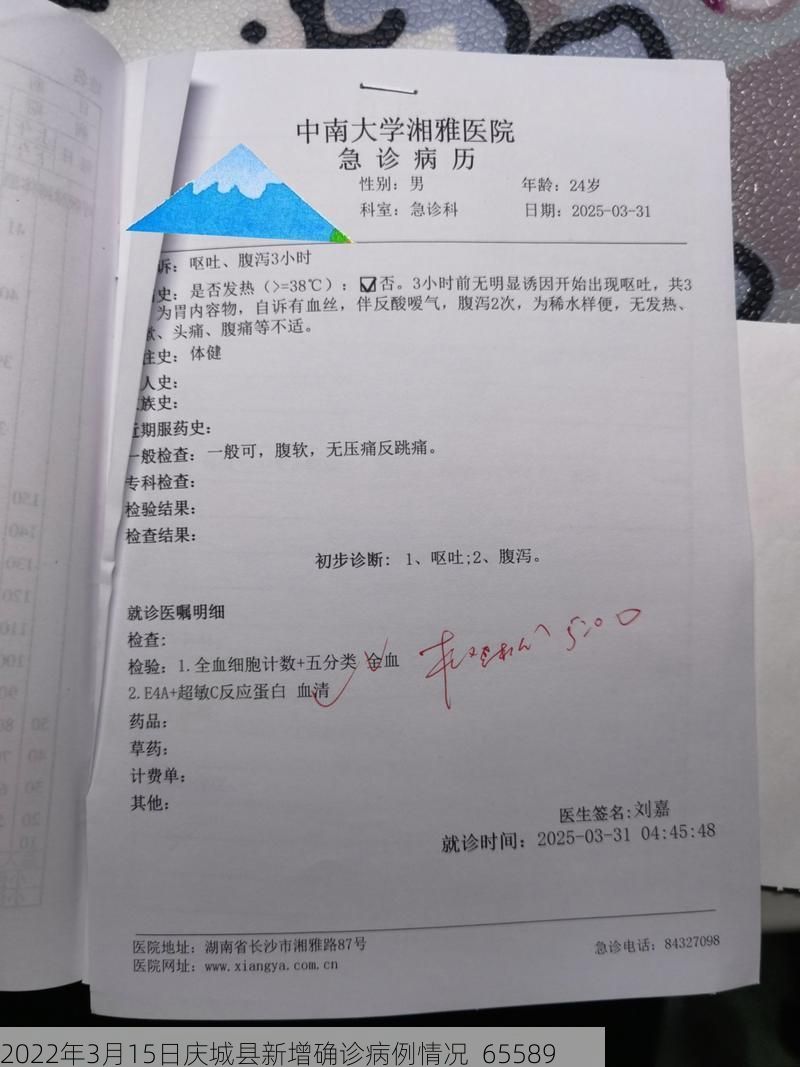 中南大学湘雅医院
急诊病历
性别：男 年龄：24岁
科室：急诊科 日期：2025-03-31
诉：呕吐、腹泻3小时
史：是否发热（>=38℃）：☑否。3小时前无明显诱因开始出现呕吐，共3
为胃内容物，自诉有血丝，伴反酸嗳气，腹泻2次，为稀水样便，无发热、
、头痛、腹痛等不适。
往史：体健
人史：
族史：
近期服药史：
一般检查：一般可，腹软，无压痛反跳痛。
专科检查：
检验结果：
检查结果：
初步诊断：1、呕吐;2、腹泻。
就诊医嘱明细
检查：
检验：1.全血细胞计数+五分类 全血
2.E4A+超敏C反应蛋白 血清
5:00
药品：
草药：
计费单：
其他：
医生签名:刘嘉
就诊时间：2025-03-31 04:45:48
医院地址：湖南省长沙市湘雅路87号 急诊电话：84327098
医院网址：www.xiangya.com.cn
2022年3月15日庆城县新增确诊病例情况 65589